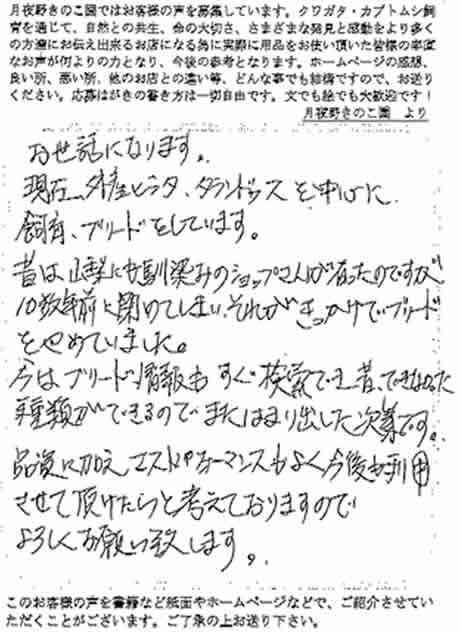 月夜野きのこ園ではお客様の声を募集しています。クワガタ・カブトムシ飼
育を通じて、自然との共生、命の大切さ、さまざまな発見と感動をより多く
の方達にお伝え出来るお店になる為に実際に用品をお使い頂いた皆様の率直
なお声が何よりの力となり、今後の参考となります。ホームページの感想、
良い所、悪い所、他のお店との違い等、どんな事でも結構ですので、お送り
ください。応募はがきの書き方は一切自由です。文でも絵でも大歓迎です!
月夜野きのこ園　より
お世話になります。
現在、外産ヒラタ、タランドゥスを中心に
飼育、ブリードをしています。
昔は山梨にも馴染みのショップさんが有ったのですが
10数年前に閉めてしまい、それがきっかけでブリード
をやめていました。
今はブリード情報もすぐ検索でき、昔、できなかった
種類ができるのでまたはまり出した次第です。
品質に加え、コストパフォーマンスもよく今後も利用
させて頂けたらと考えておりますので
よろしくお願い致します。
このお客様の声を書籍など紙面やホームページなどで、ご紹介させてい
ただくことがございます。ご了承の上お送り下さい。